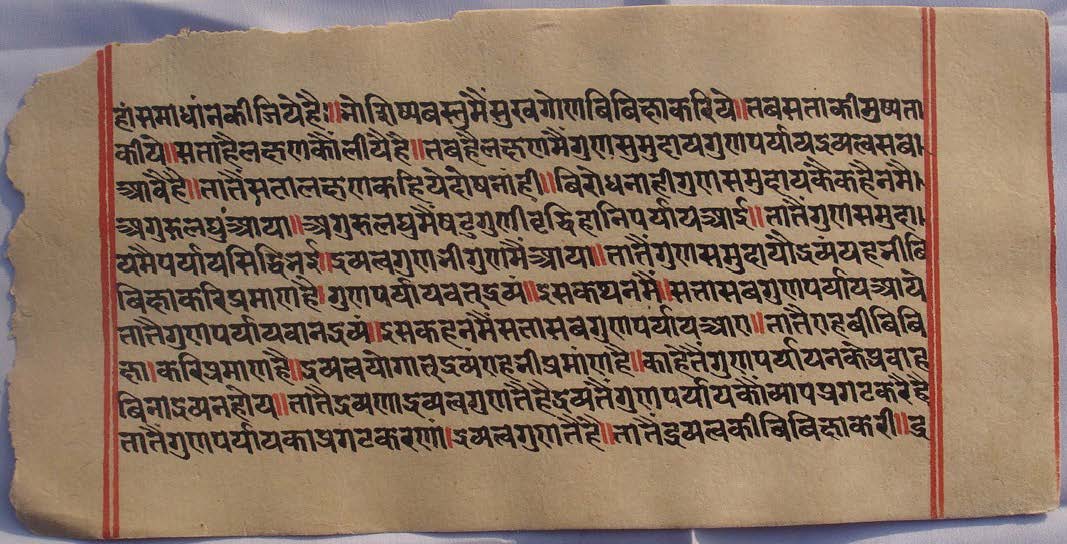 हांसमाधांनकीजियेहै॥मोशिष्यबस्तुमैंमुखगोणबिबिक्षाकरिये॥तबसताकीमुष्यता
कीये॥सताहैलक्षणकौंलीयैहै॥तबहैलक्षणमैंगुणसुमुदायगुणपर्यायद्रव्यत्वसबा।
आवैहै॥तातैंसतालक्षणकहियेदोषनांही॥बिरोधनाहीगुणसमुदायकैकहैनमै।
अगुरुलघुंआया॥अगुरुलघुमैंषटगुणीवृद्धिहानिपर्यायआई॥तातैंगुणसमुदा।
यमैपर्यायसिद्धिनई॥द्रव्यत्वगुणनीगुणमैंआया॥तातैंगुणसमुदायौद्रव्यंयहनीबि
बिक्षाकरिप्रमाणहै।गुणपर्यायवतद्रव्यं॥इसकथनमैं॥सत्तासबगुणपर्यायआये
तातैगुणपर्यायवानद्रव्यं॥इसकहनंमैंसतासबगुणपर्यायआए॥तातैंएहबीबिबि
क्षा।करिप्रमाणहै॥द्रव्यत्वयोगात्द्रव्यंएहनीप्रमांणहै॥काहेतैंगुणपर्यायनकेप्रवाह
बिनांद्रव्यनहोय॥तातैद्रव्यणाद्रव्यत्वगुणतैहैद्रव्यतैंगुणपर्यायकौंव्यापप्रगटकरैहै
तातैंगुणपर्यायकाप्रगटकरणां।द्रव्यत्वगुणतैहै॥तातैंद्रव्यत्वकीबिबिक्षाकरी॥द्र